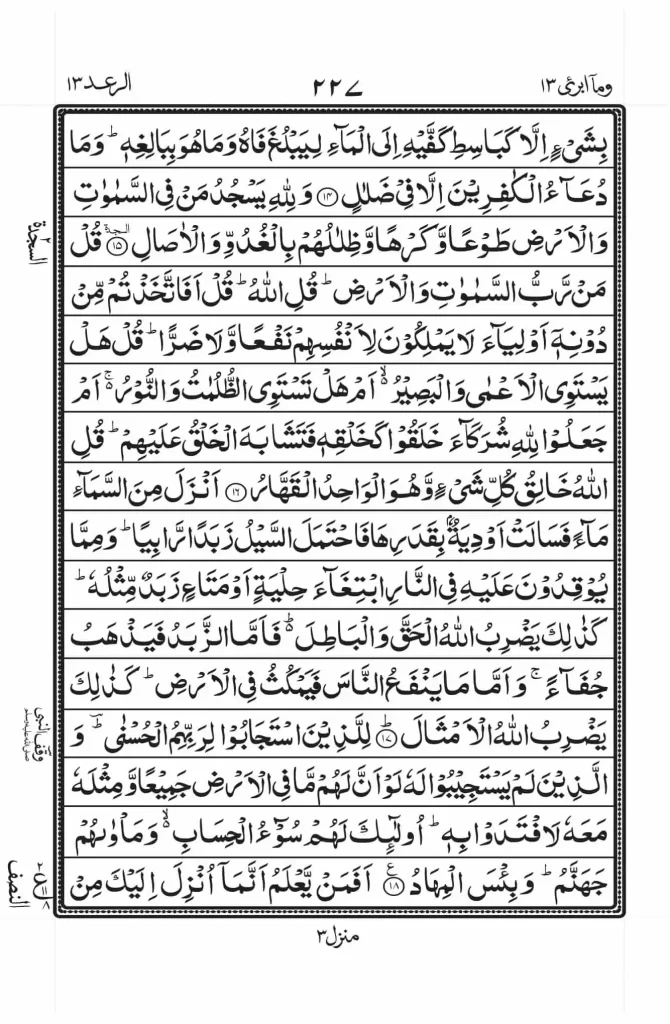 وما ابرئ ١٣
٢٢٧
الرعد ١٣
بِشَىْءٍ اِلَّا كَبَاسِطِ كَفَّيْهِ اِلَى الْمَآءِ لِيَبْلُغَ فَاهُ وَمَا هُوَ بِبَالِغِهٖ ؕ وَمَا
دُعَآءُ الْكٰفِرِيْنَ اِلَّا فِىْ ضَلٰلٍ ﴿۱۴﴾ وَلِلّٰهِ يَسْجُدُ مَنْ فِى السَّمٰوٰتِ
وَالْاَرْضِ طَوْعًا وَّكَرْهًا وَّظِلٰلُهُمْ بِالْغُدُوِّ وَالْاٰصَالِ ﴿۱۵﴾ السجدة قُلْ
السجدة ٢
مَنْ رَّبُّ السَّمٰوٰتِ وَالْاَرْضِ ؕ قُلِ اللّٰهُ ؕ قُلْ اَفَاتَّخَذْتُمْ مِّنْ
دُوْنِهٖۤ اَوْلِيَآءَ لَا يَمْلِكُوْنَ لِاَنْفُسِهِمْ نَفْعًا وَّلَا ضَرًّا ؕ قُلْ هَلْ
يَسْتَوِى الْاَعْمٰى وَالْبَصِيْرُ ۙ۬ اَمْ هَلْ تَسْتَوِى الظُّلُمٰتُ وَالنُّوْرُ ۚ۬ اَمْ
جَعَلُوْا لِلّٰهِ شُرَكَآءَ خَلَقُوْا كَخَلْقِهٖ فَتَشَابَهَ الْخَلْقُ عَلَيْهِمْ ؕ قُلِ
اللّٰهُ خَالِقُ كُلِّ شَىْءٍ وَّهُوَ الْوَاحِدُ الْقَهَّارُ ﴿۱۶﴾ اَنْزَلَ مِنَ السَّمَآءِ
مَآءً فَسَالَتْ اَوْدِيَةٌۢ بِقَدَرِهَا فَاحْتَمَلَ السَّيْلُ زَبَدًا رَّابِيًا ؕ وَمِمَّا
يُوْقِدُوْنَ عَلَيْهِ فِى النَّارِ ابْتِغَآءَ حِلْيَةٍ اَوْ مَتَاعٍ زَبَدٌ مِّثْلُهٗ ؕ
كَذٰلِكَ يَضْرِبُ اللّٰهُ الْحَقَّ وَالْبَاطِلَ ۬ؕ فَاَمَّا الزَّبَدُ فَيَذْهَبُ
جُفَآءً ۚ وَاَمَّا مَا يَنْفَعُ النَّاسَ فَيَمْكُثُ فِى الْاَرْضِ ؕ كَذٰلِكَ
يَضْرِبُ اللّٰهُ الْاَمْثَالَ ﴿۱۷﴾ؕ لِلَّذِيْنَ اسْتَجَابُوْا لِرَبِّهِمُ الْحُسْنٰى ؔؕ وَ
وقف النبى صلى الله عليه وسلم
الَّذِيْنَ لَمْ يَسْتَجِيْبُوْا لَهٗ لَوْ اَنَّ لَهُمْ مَّا فِى الْاَرْضِ جَمِيْعًا وَّمِثْلَهٗ
مَعَهٗ لَافْتَدَوْا بِهٖ ؕ اُولٰٓئِكَ لَهُمْ سُوْٓءُ الْحِسَابِ ۙ۬ وَمَاْوٰىهُمْ
جَهَنَّمُ ؕ وَبِئْسَ الْمِهَادُ ﴿۱۸﴾ ع اَفَمَنْ يَّعْلَمُ اَنَّمَاۤ اُنْزِلَ اِلَيْكَ مِنْ
النصف
منزل ٣